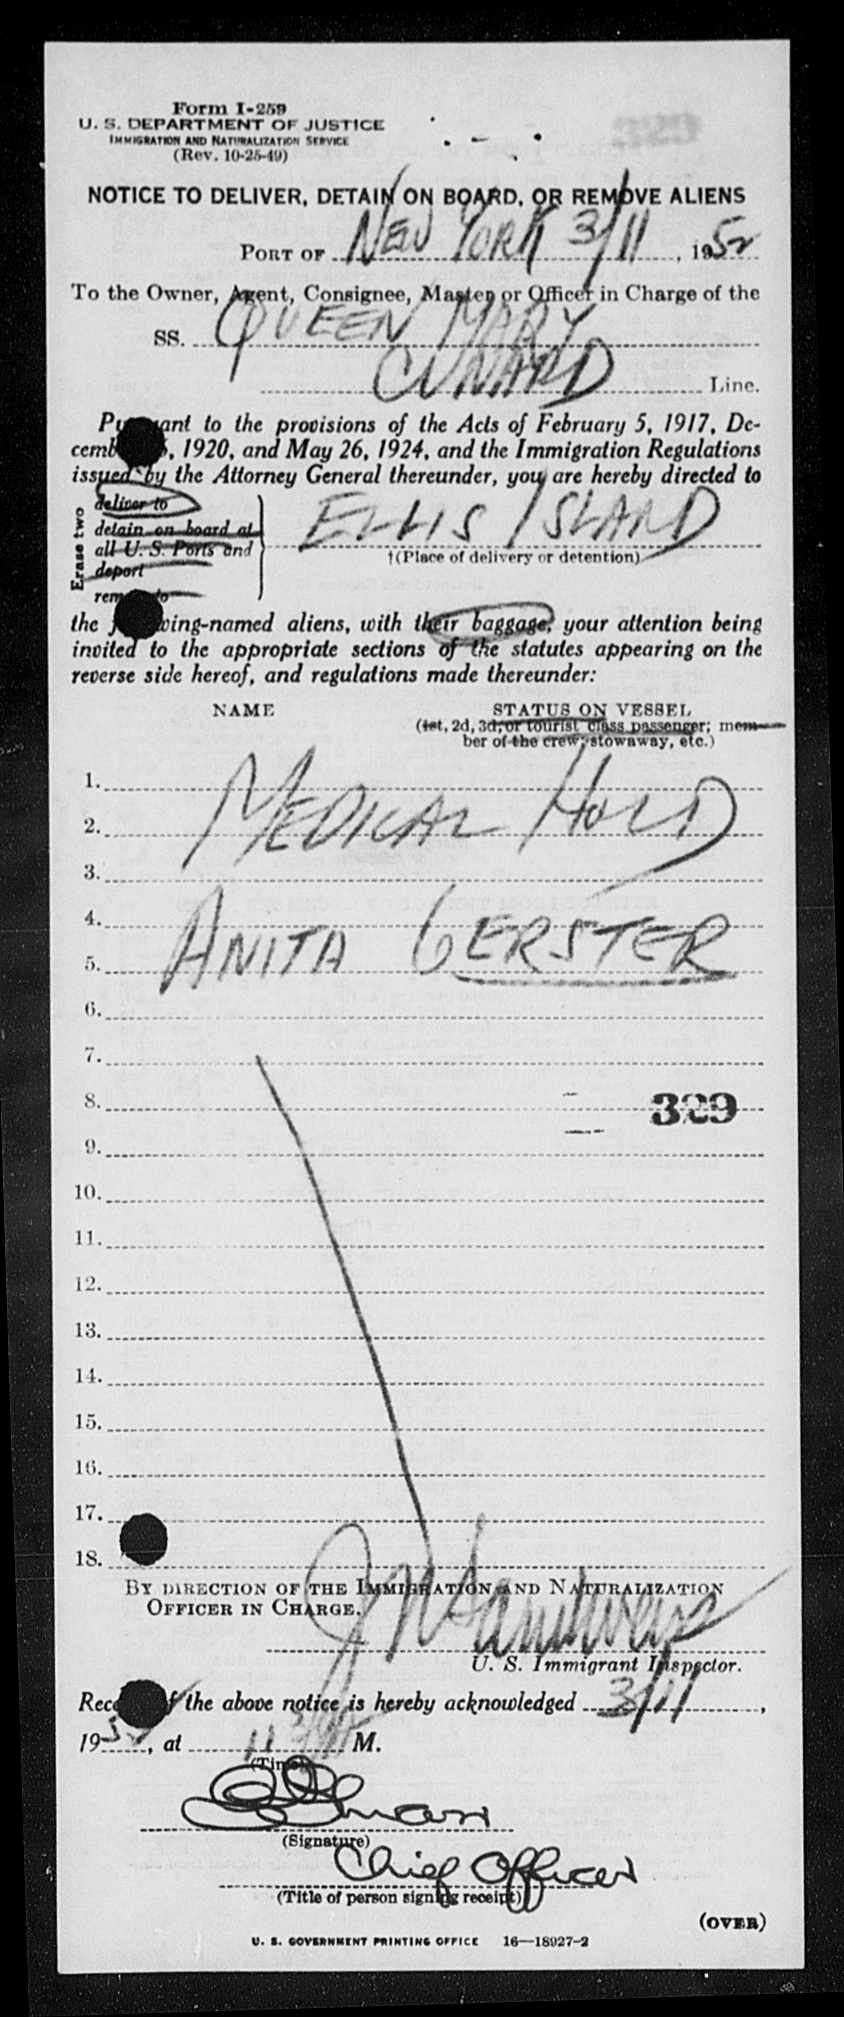 Form I-259
U. S. DEPARTMENT OF JUSTICE
IMMIGRATION AND NATURALIZATION SERVICE
(Rev. 10-25-49)
NOTICE TO DELIVER, DETAIN ON BOARD, OR REMOVE ALIENS
PORT OF NEW YORK 3/11, 1952
To the Owner, Agent, Consignee, Master or Officer in Charge of the
SS. QUEEN MARY
CUNARD Line.
Pursuant to the provisions of the Acts of February 5, 1917, De-
1920, and May 26, 1924, and the Immigration Regulations
issued by the Attorney General thereunder, you are hereby directed to
Erase two
deliver to
detain on board at
all U. S. Ports and
deport
remove to
ELLIS ISLAND
†(Place of delivery or detention)
the following-named aliens, with their baggage, your attention being
invited to the appropriate sections of the statutes appearing on the
reverse side hereof, and regulations made thereunder:
NAME STATUS ON VESSEL
(1st, 2d, 3d, or tourist class passenger; mem-
ber of the crew, stowaway, etc.)
1.
2. MEDICAL HOLD
3.
4.
5. ANITA GERSTER
6.
7.
8. 329
9.
10.
11.
12.
13.
14.
15.
16.
17.
18.
BY DIRECTION OF THE IMMIGRATION AND NATURALIZATION
OFFICER IN CHARGE.
U. S. Immigrant Inspector.
Receipt of the above notice is hereby acknowledged 3/11,
1952, at M.
(Time)
(Signature)
Chief Officer
(Title of person signing receipt)
(OVER)
U. S. GOVERNMENT PRINTING OFFICE 16—18927-2